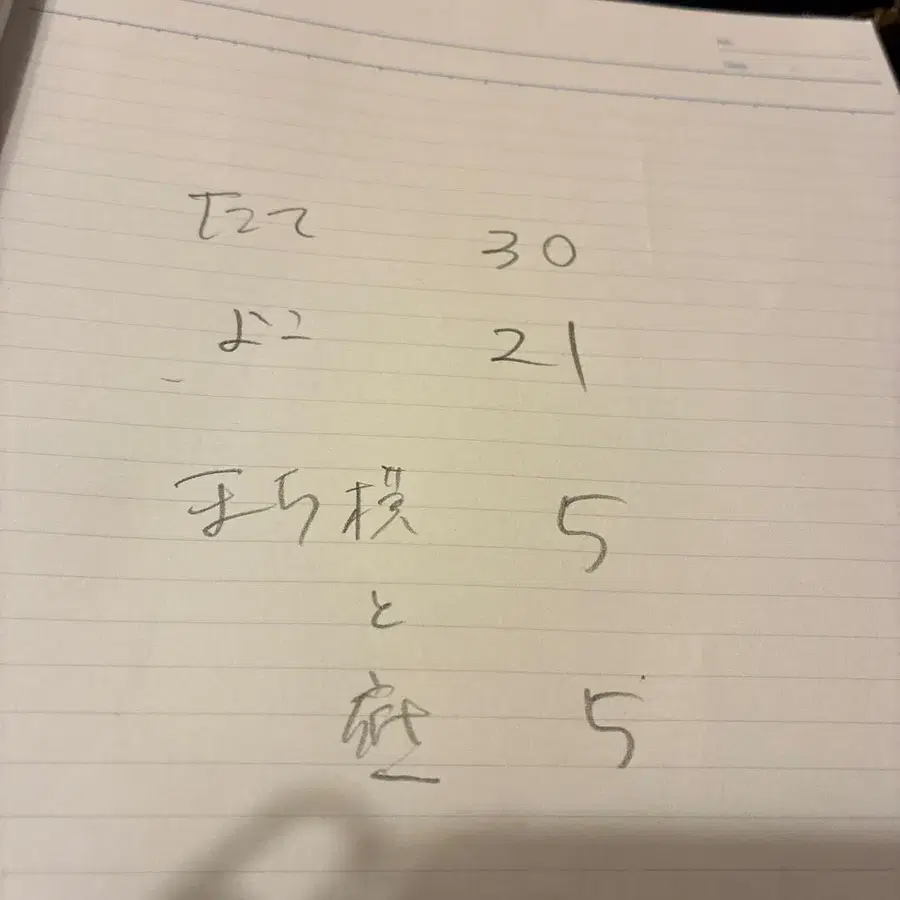 たて 30
よこ 21
横 5
と
壁 5